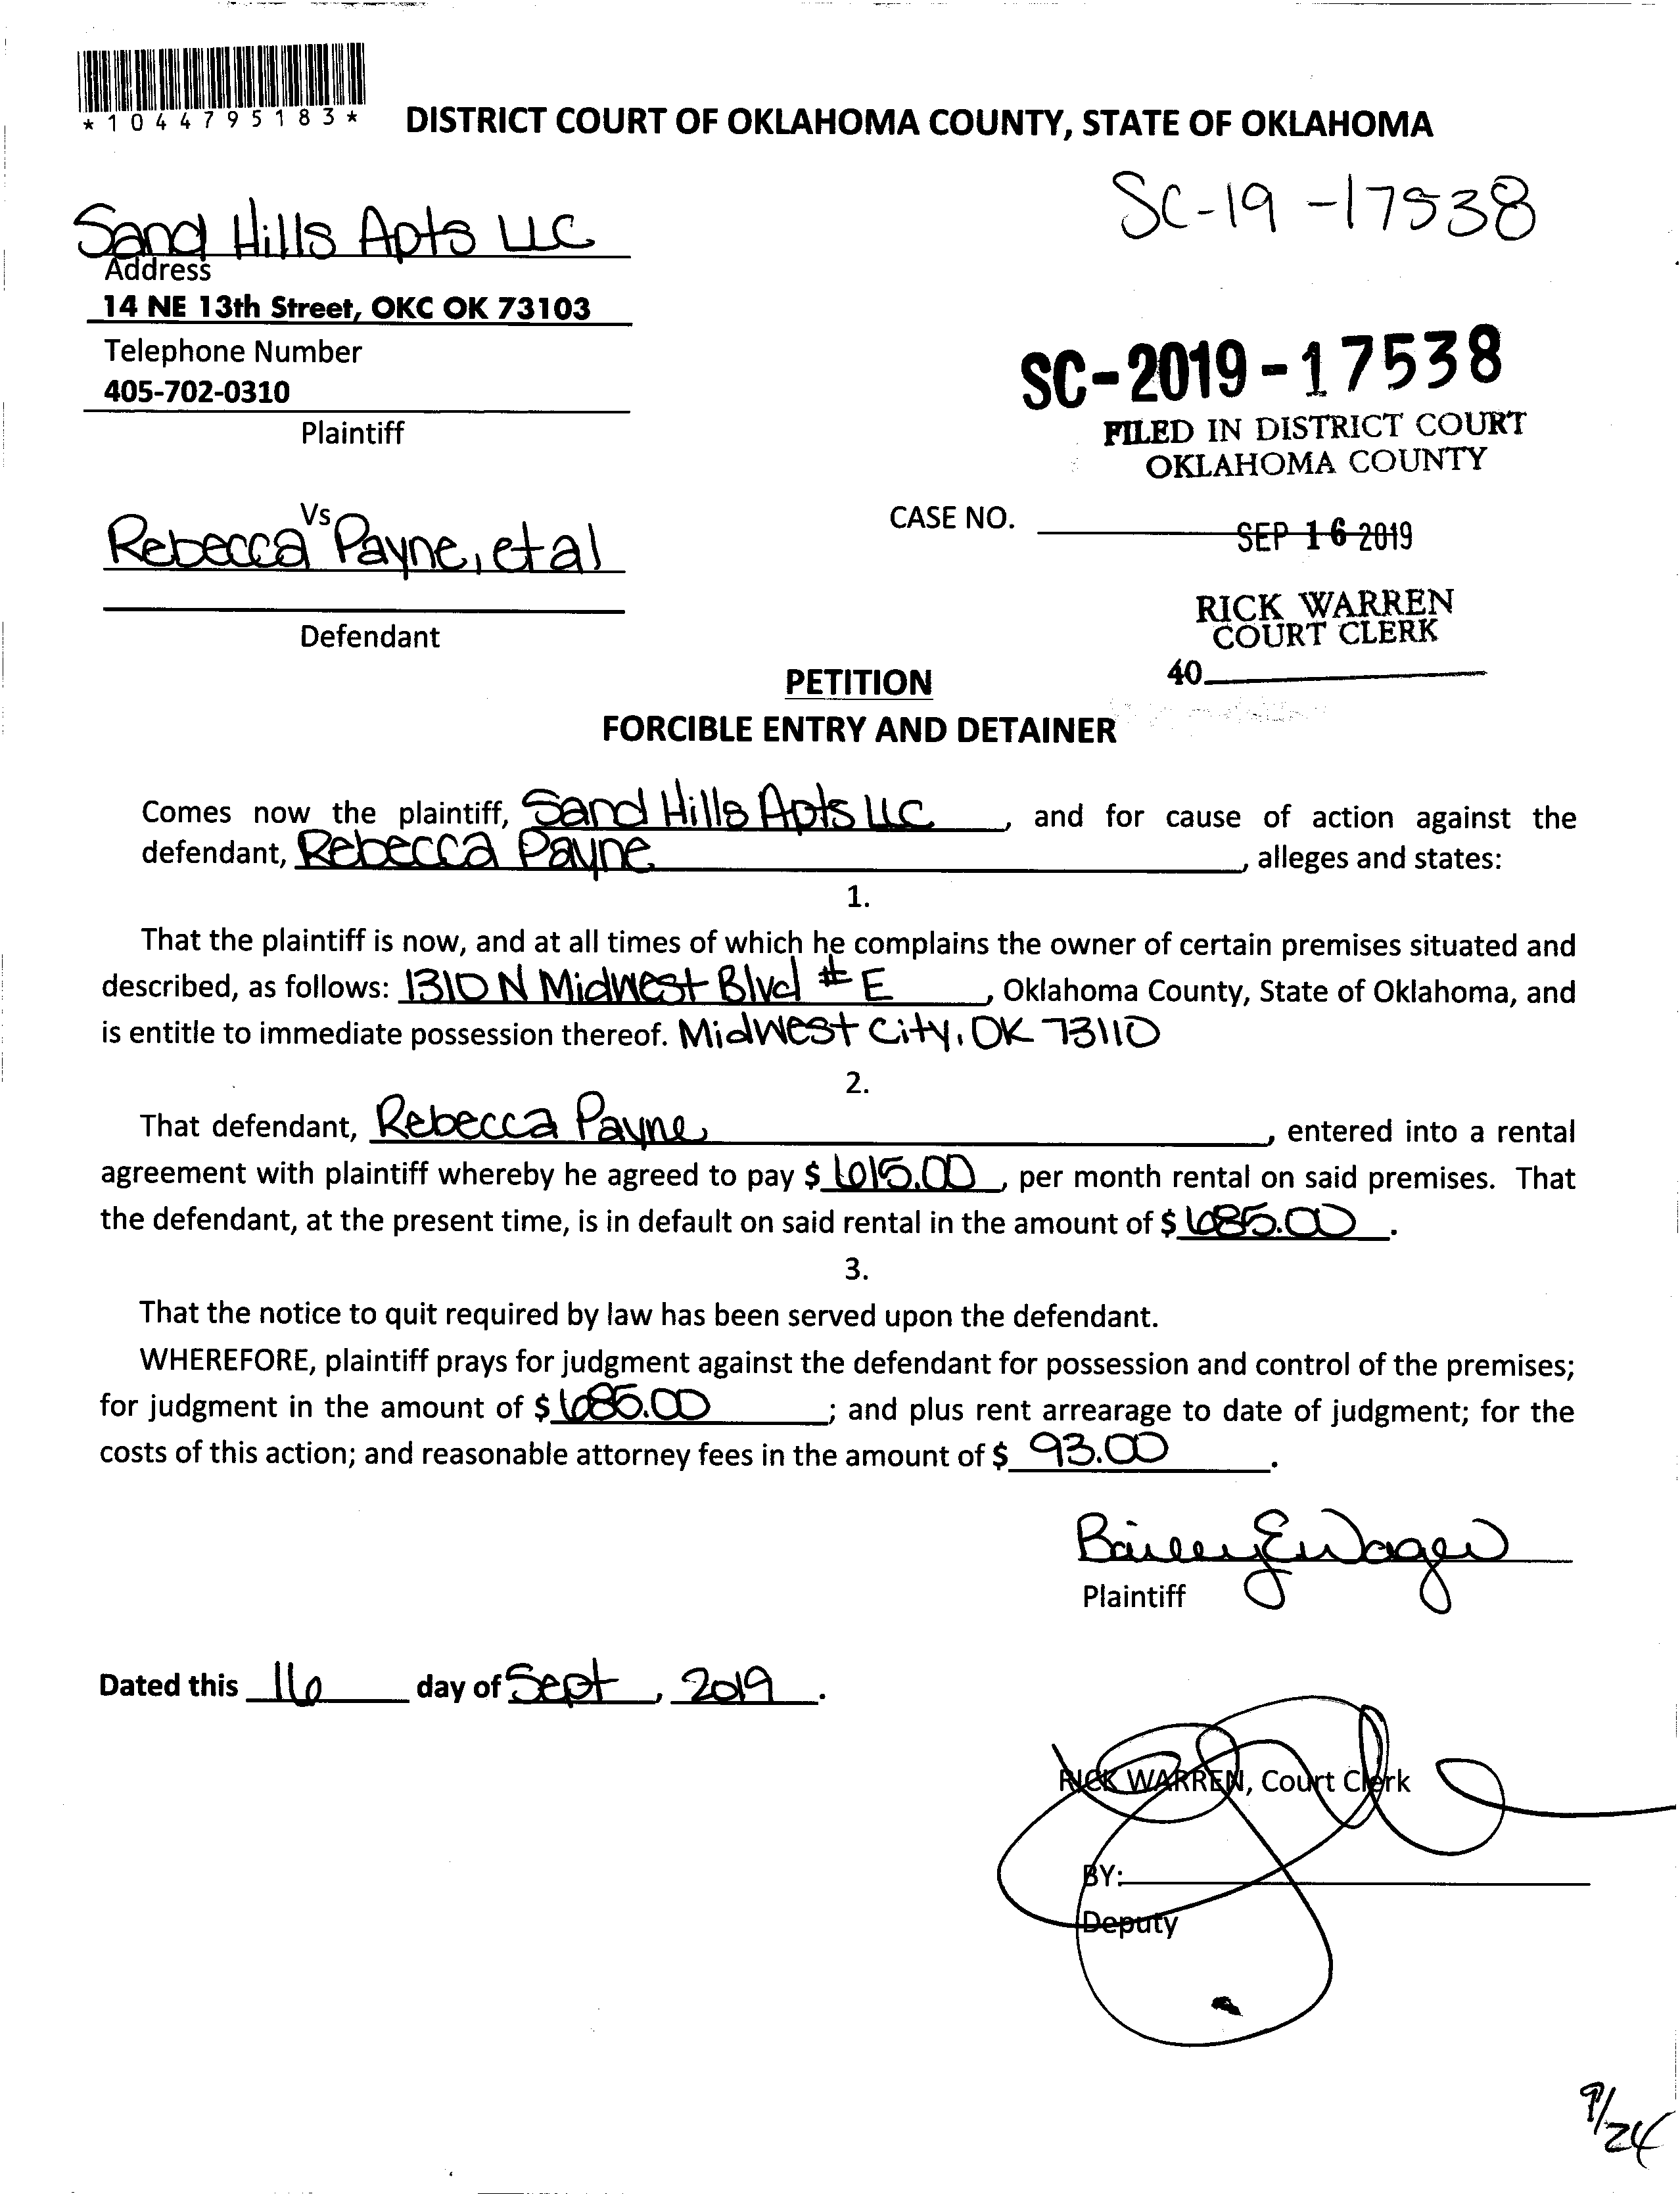 *1044795183*
DISTRICT COURT OF OKLAHOMA COUNTY, STATE OF OKLAHOMA
SC-19-17538
Sand Hills Apts LLC
Address
14 NE 13th Street, OKC OK 73103
Telephone Number
405-702-0310
Plaintiff
SC-2019-17538
FILED IN DISTRICT COURT
OKLAHOMA COUNTY
Vs
Rebecca Payne, et al
CASE NO.
SEP 16 2019
Defendant
RICK WARREN
COURT CLERK
40
PETITION
FORCIBLE ENTRY AND DETAINER
Comes now the plaintiff, Sand Hills Apts LLC, and for cause of action against the
defendant, Rebecca Payne, alleges and states:
1.
That the plaintiff is now, and at all times of which he complains the owner of certain premises situated and
described, as follows: 1310 N Midwest Blvd # E, Oklahoma County, State of Oklahoma, and
is entitle to immediate possession thereof. Midwest City, OK 73110
2.
That defendant, Rebecca Payne, entered into a rental
agreement with plaintiff whereby he agreed to pay $ 615.00, per month rental on said premises. That
the defendant, at the present time, is in default on said rental in the amount of $ 685.00.
3.
That the notice to quit required by law has been served upon the defendant.
WHEREFORE, plaintiff prays for judgment against the defendant for possession and control of the premises;
for judgment in the amount of $ 685.00; and plus rent arrearage to date of judgment; for the
costs of this action; and reasonable attorney fees in the amount of $ 93.00.
Plaintiff
Dated this 16 day of Sept, 2019.
RICK WARREN, Court Clerk
BY:
Deputy
9/24